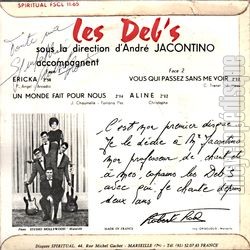 SPIRITUAL FSCL 11.65
les Deb's
sous la direction d'André JACONTINO
accompagnent
Face 2
ERICKA 2'58
VOUS QUI PASSEZ SANS ME VOIR 2'12
P. Angel
C. Trenet
UN MONDE FAIT POUR NOUS 2'14
ALINE 2'52
J. Chaumelle - Tatiana
Christophe
C'est mon premier disque
Je le dédie à Mr Jacontino
mon professeur de chant et
à mes copains les Deb's
avec qui je chante depuis
deux ans
Photo STUDIO HOLLYWOOD - Marseille
MADE IN FRANCE
Disques SPIRITUAL, 44, Rue Michel Gachet - MARSEILLE (7e) - Tél. 52.07.65 FRANCE